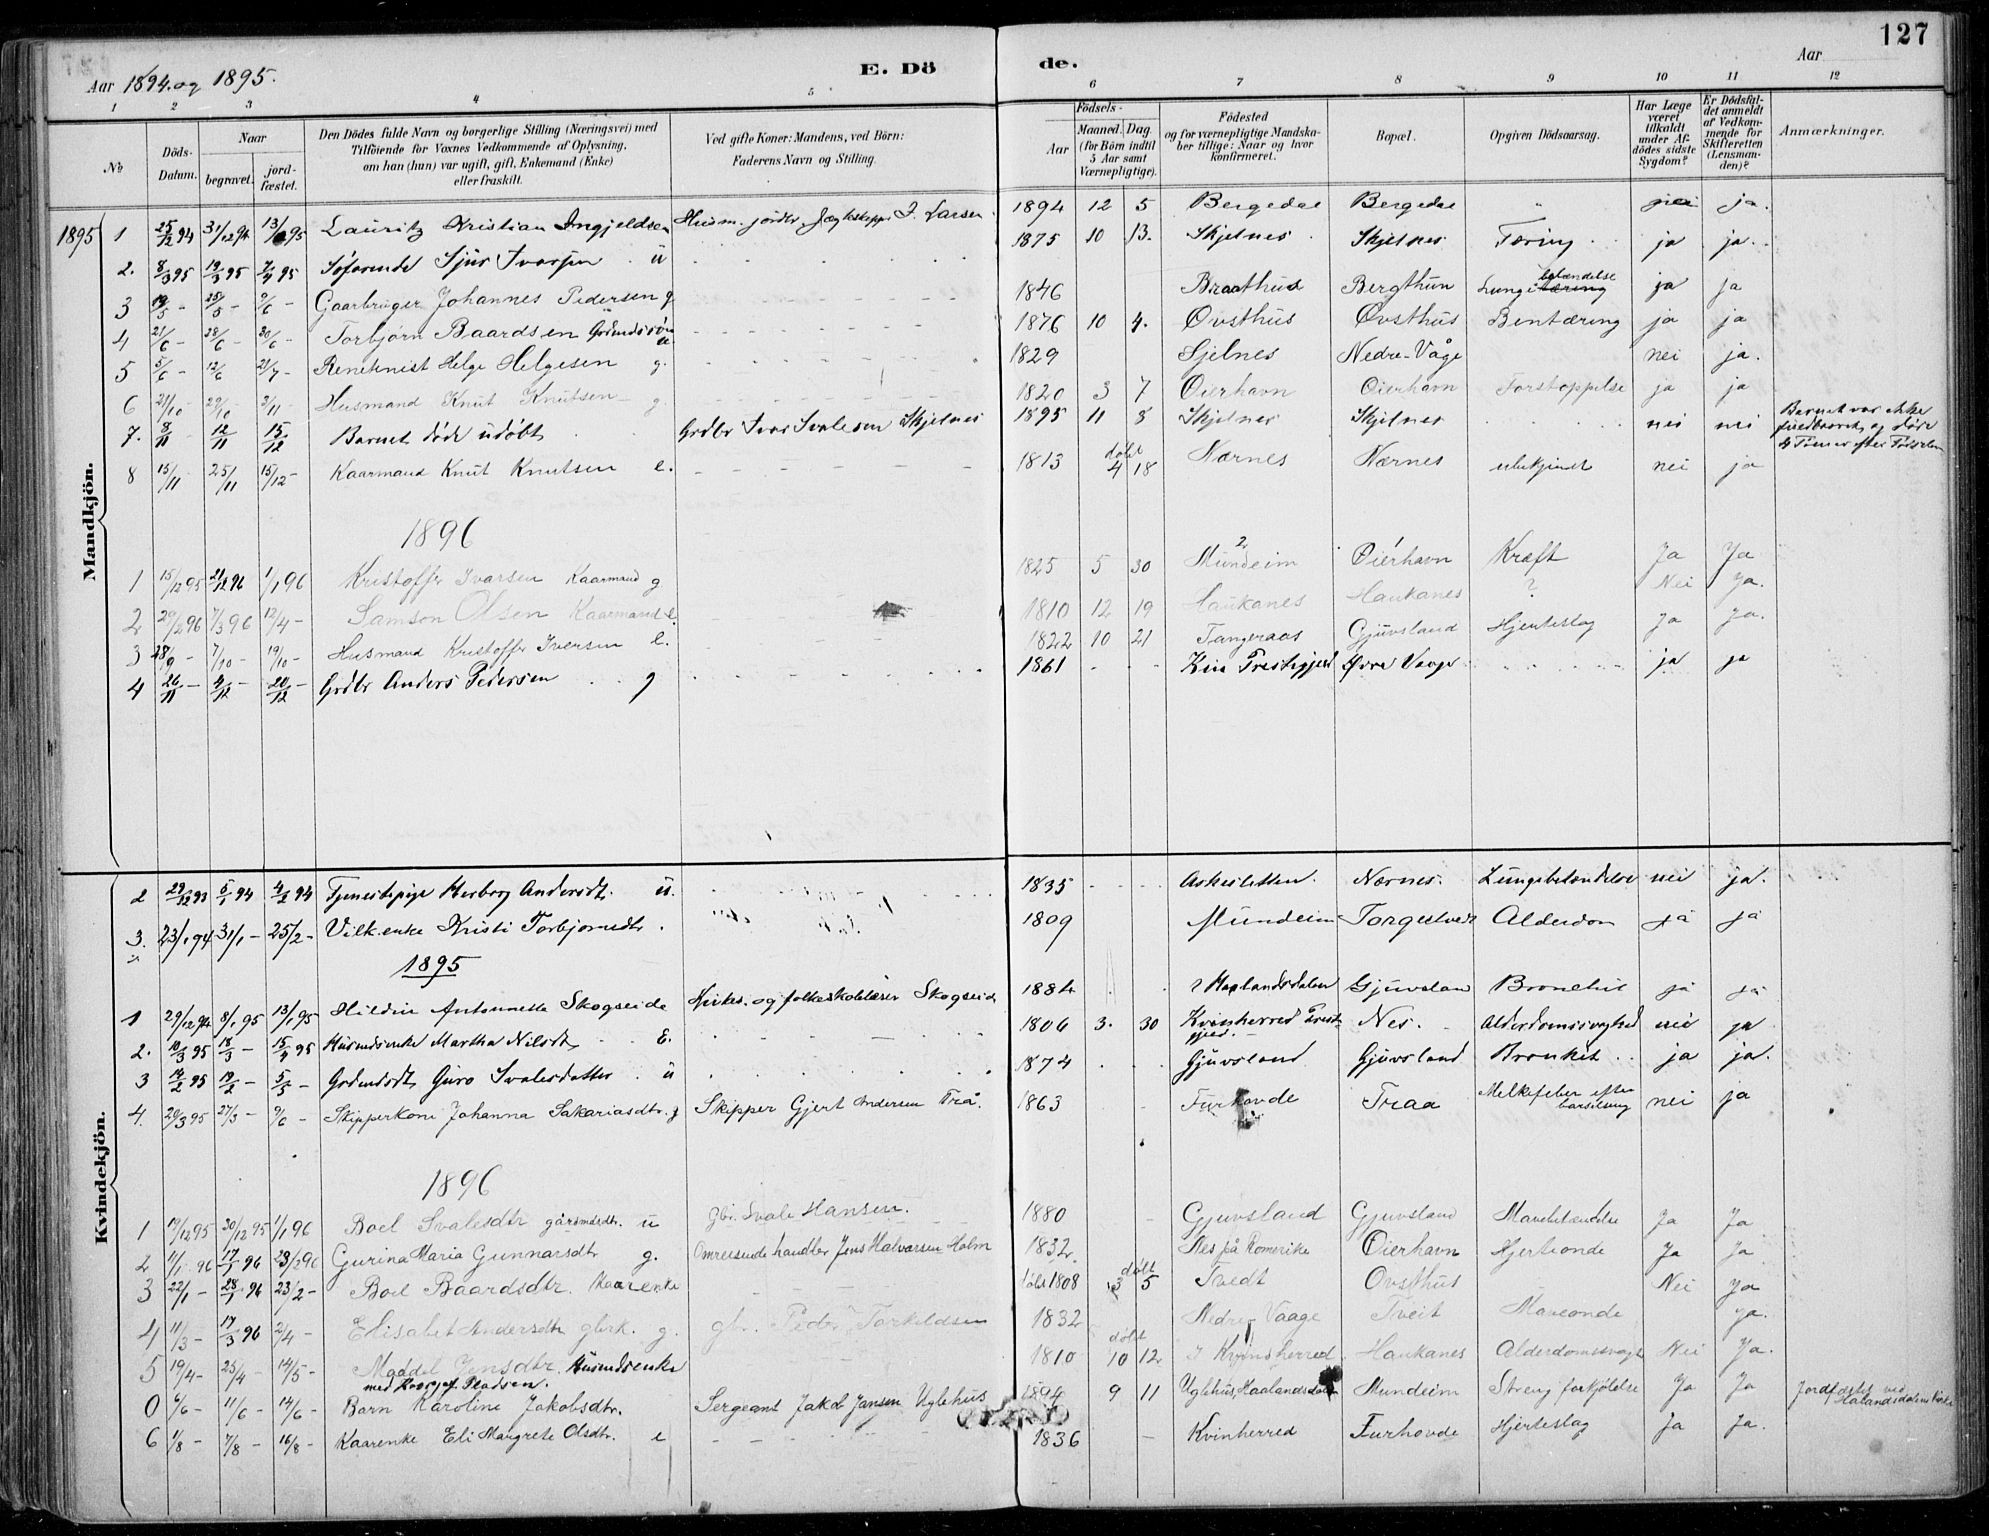 127
Aar 1894 og 1895.
E. Dö
de.
Aar
1 2 3 4 5 6 7 8 9 10 11 12
No
Döds-Datum.
Naar
begravet.
jord-fæstet.
Den Dödes fulde Navn og borgerlige Stilling (Næringsvei) med
Tilföiende for Voxnes Vedkommende af Oplysning,
om han (hun) var ugift, gift, Enkemand (Enke)
eller fraskilt.
Ved gifte Koner: Mandens, ved Börn:
Faderens Navn og Stilling.
Födsels-
Aar
Maaned. Dag.
(for Börn indtil
5 Aar samt
Værnepligtige).
Födested
og for værnepligtige Mandska-
ber tillige: Naar og hvor
konfirmeret.
Bopæl.
Opgiven Dödsaarsag.
Har Læge
været
tilkaldt
under Af-
dödes sidste
Sygdom?
Er Dödsfal-
det anmeldt
af Vedkom-
mende for
Skifteretten
(Lensman-
den)?
Anmærkninger.
Mandkjön.
1895 1 25/12 94 31/12 94 13/1 95 Lauritz Kristian Ingjeldsen Husm. jordbr. Jægteskipper I. Larsen 1894 12 5 Bergedal Bergedal " nei ja.
2. 8/3 95 19/3 95 7/4 95 Söfarende Sjur Ivarsen u 1875 10 13. Skjelnes Skjelnes Tæring ja ja.
3 19/5 - 25/5 - 9/6 - Gaarbruger Johannes Pedersen g. 1846 Braathus Bergthun Lungebetændelse ja ja
4 21/6 - 28/6 - 30/6 - Torbjørn Baardsen Grdmdssön u 1876 10 4. Øvsthus Øvsthus Bentæring ja ja
5 5/6 - 12/6 21/7 - Helge Helgesen g. 1829 Sjelnes Nedre-Våge nei ja.
6 21/10 - 29/10 3/11 - Husmand Knut Knutsen g. 1820 3 7 Øierhavn Øierhavn Forstoppelse ja ja
7. 8/11 12/11 15/12 Barnet døde udøbt Grdbr Ivar Svalesen Skjelnes 1895 11 8 Skjelnes Skjelnes nei nei Barnet var ikke fuldbaaret og døde 4 Timer efter Fødselen
8 15/11 25/11 15/12 - Kaarmand Knut Knutsen e. 1813 døbt 4 18 Nærnes Nærnes ubekjendt nei ja
1896
1 15/12 95 21/12 96 1/1 96 Kristoffer Ivarsen Kaarmand g. 1825 5 30 Mundeim Øierhavn Kræft Ja Ja
2 29/2 96 7/3 96 12/4 - Samson Olsen Kaarmand e. 1810 12 19 Haukanes Haukanes ? Nei Ja.
3 28/9 - 7/10 - 19/10 - Husmand Kristoffer Iversen e. 1822 10 21 Tangeraas Gjuvsland Hjerteslag Ja Ja.
4 26/11 - 4/12 - 20/12 - Grdbr Anders Pedersen g 1861 Prestegjeld Øvre Vaage ja ja
Kvindekjön.
2 29/12 93 5/1 94 4/2 94 Tjenestepige Herborg Andersdt. u. 1835 Askesletten Nærnes. Lungebetændelse nei ja.
3. 23/1 94 31/1 - 25/2 - Vilk.enke Kristi Torbjørnsdtr. 1809 Mundeim Torgetvedt Alderdom ja ja
1895
1 29/12 94 8/1 95 13/1 95 Hildur Antonette Skogseide Kirkes. og folkeskolelærer Skogseid 1884 Haalandsdalen Gjuvsland Bronchit ja ja
2. 10/3 95 18/3 - 15/4 95 Husmdsenke Martha Nilsdt. E. 1806 3. 30 Kvinherred Prest-gjeld. Nes. Alderdomssvaghed nei ja
3 14/2 95 19/2 - 5/5 - Grdmdsdt. Guro Svalesdatter u 1874 Gjuvsland Gjuvsland Bronkit ja ja.
4. 20/3 95 27/3 - 9/6 - Skipperkone Johanna Sakariasdtr. g Skipper Gjert Andersen Trå. 1863 Furhovde Traa Melkefeber efter barselseng nei ja
1896
1 19/12 95 30/12 95 1/1 96 Boel Svalesdtr gårdmdsdtr. u Gbr. Svale Hansen. 1880 Gjuvsland Gjuvsland Mavebetændelse Ja Ja
2 11/1 96 17/1 96 23/2 96 Gurina Maria Gunnarsdtr g. Omreisende handler Jens Halvarsen Holm 1832 Nes på Romerike Øierhavn Hjerteonde Ja Ja
3 22/1 - 28/1 96 23/2 - Boel Baardsdtr. Kaarenke 1808 døbt 3 5 Tvedt Ovsthus Nei Ja
4 11/3 - 17/3 96 2/4 - Elisabet Andersdtr gbrk. g. gbr. Peder Torkeldsen 1832 Nedre Vaage Tveit Maveonde ja.
5 19/4 - 25/4 - 14/5 - Magdel Jensdtr. Husmdsenke 1810 døbt 10 12 I Kvinsherred Haukanes Alderdomssvagh Nei Ja.
0 6/6 - 11/6 - 14/6 - Barn Karoline Jakobsdtr. Sergeant Jakob Jansen Uglehus 1894 9 11 Uglehus Haalandsdalen Mundeim Streng forkjølelse Ja Ja Jordfæstet ved Hålandsdalens Kirke
6 1/8 - 7/8 - 16/8 - Kaarenke Eli Margrete Olsdtr. e 1836 Kvinherred Furhovde Hjerteslag Ja Ja.